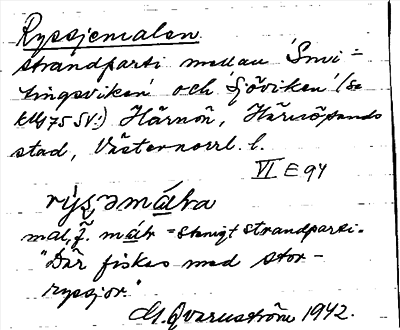 Ryssjemalen
strandparti mellan 'Smi-
tingsviken' och 'Sjöviken' (Se
75 SV:) Härnön, Härnösands
stad, Västernorrl. l.
VI E 94
mal, f. = stenigt strandparti.
"Där fiskes med stor-
ryssjor."
M. Qvarnström 1942.